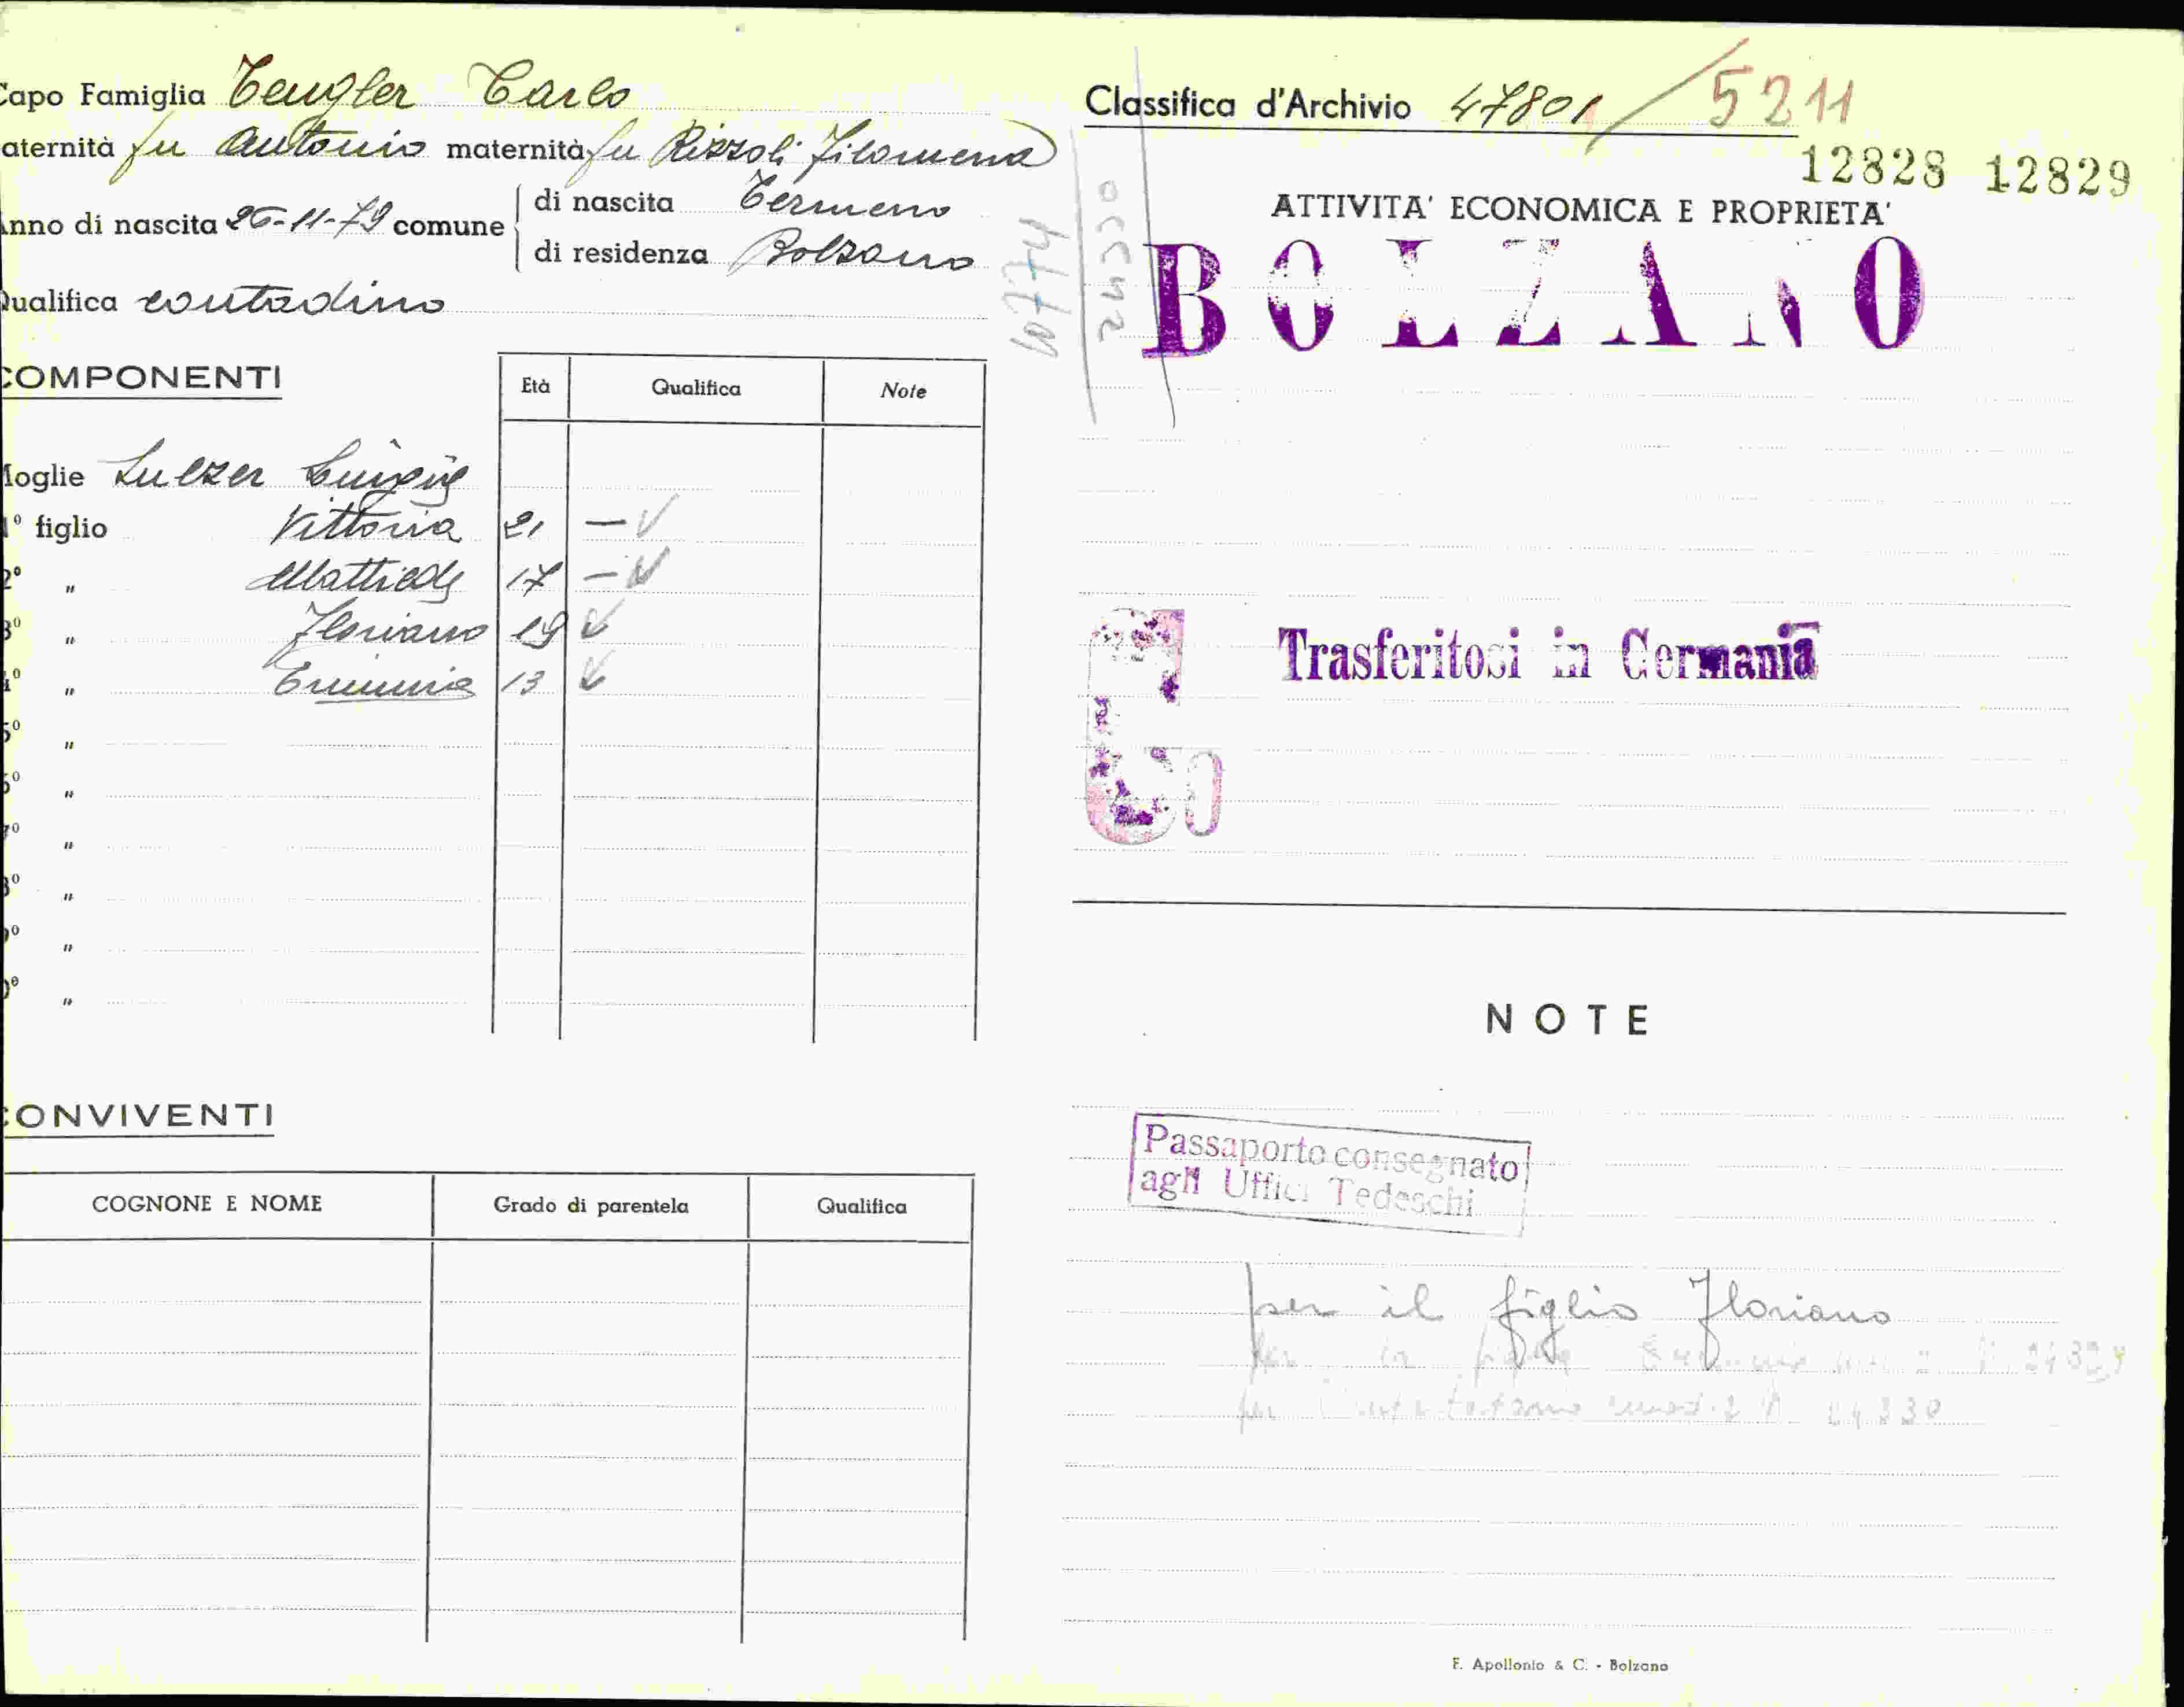 Capo Famiglia Tengler Carlo
aternità fu Antonio maternità fu Rizzoli Filomena
Anno di nascita 26-11-79 comune
di nascita Termeno
di residenza Bolzano
Qualifica contadino
COMPONENTI
Età Qualifica Note
Moglie Sulzer Luigia
1º figlio Vittoria 21 —
2º " Mattilde 17 —
3º " Floriano 19
4º " Erminia 13
5º "
6º "
7º "
8º "
9º "
0º "
CONVIVENTI
COGNONE E NOME Grado di parentela Qualifica
Classifica d'Archivio 47801 / 5211
12828 12829
ATTIVITA' ECONOMICA E PROPRIETA'
BOLZANO
Trasferitosi in Germania
NOTE
Passaporto consegnato
agli Uffici Tedeschi
per il figlio Floriano
per la figlia
per 24330
F. Apollonio & C. - Bolzano